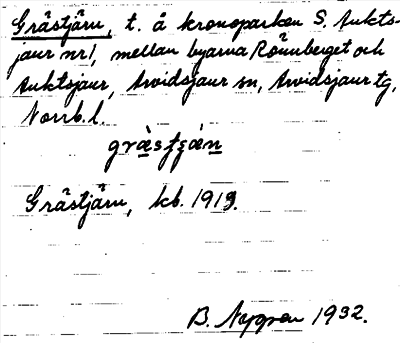 Gråstjärn, t. å kronoparken S. Aukts-
jaur nr 1, mellan byarna Rönnberget och
Auktsjaur, Arvidsjaur sn, Arvidsjaur tg,
Norrb. l.
Gråstjärn, kb. 1919.
B. Nygren 1932.